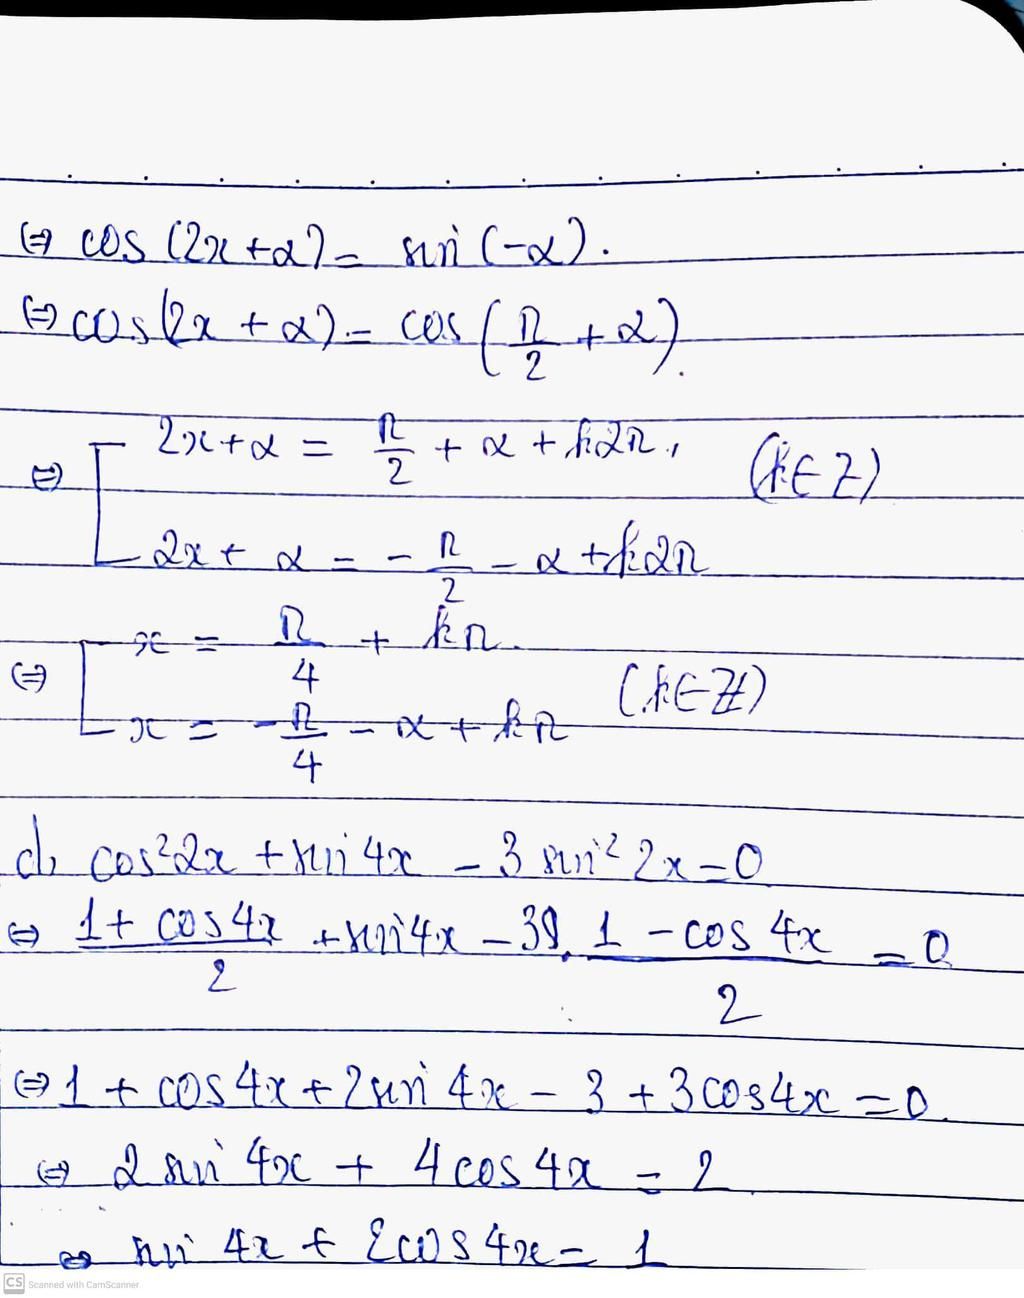 ⇔ cos (2x + α) = sin (-α).
⇔ cos (2x + α) = cos (π/2 + α).
⇔ [ 2x + α = π/2 + α + k2π, (k ∈ Z)
2x + α = -π/2 - α + k2π
⇔ [ x = π/4 + kπ. (k ∈ Z)
x = -π/4 - α + kπ
d, cos²2x + sin 4x - 3 sin² 2x = 0
⇔ (1 + cos 4x)/2 + sin 4x - 3. (1 - cos 4x)/2 = 0
⇔ 1 + cos 4x + 2 sin 4x - 3 + 3 cos 4x = 0.
⇔ 2 sin 4x + 4 cos 4x = 2
⇔ sin 4x + 2 cos 4x = 1
CS Scanned with CamScanner